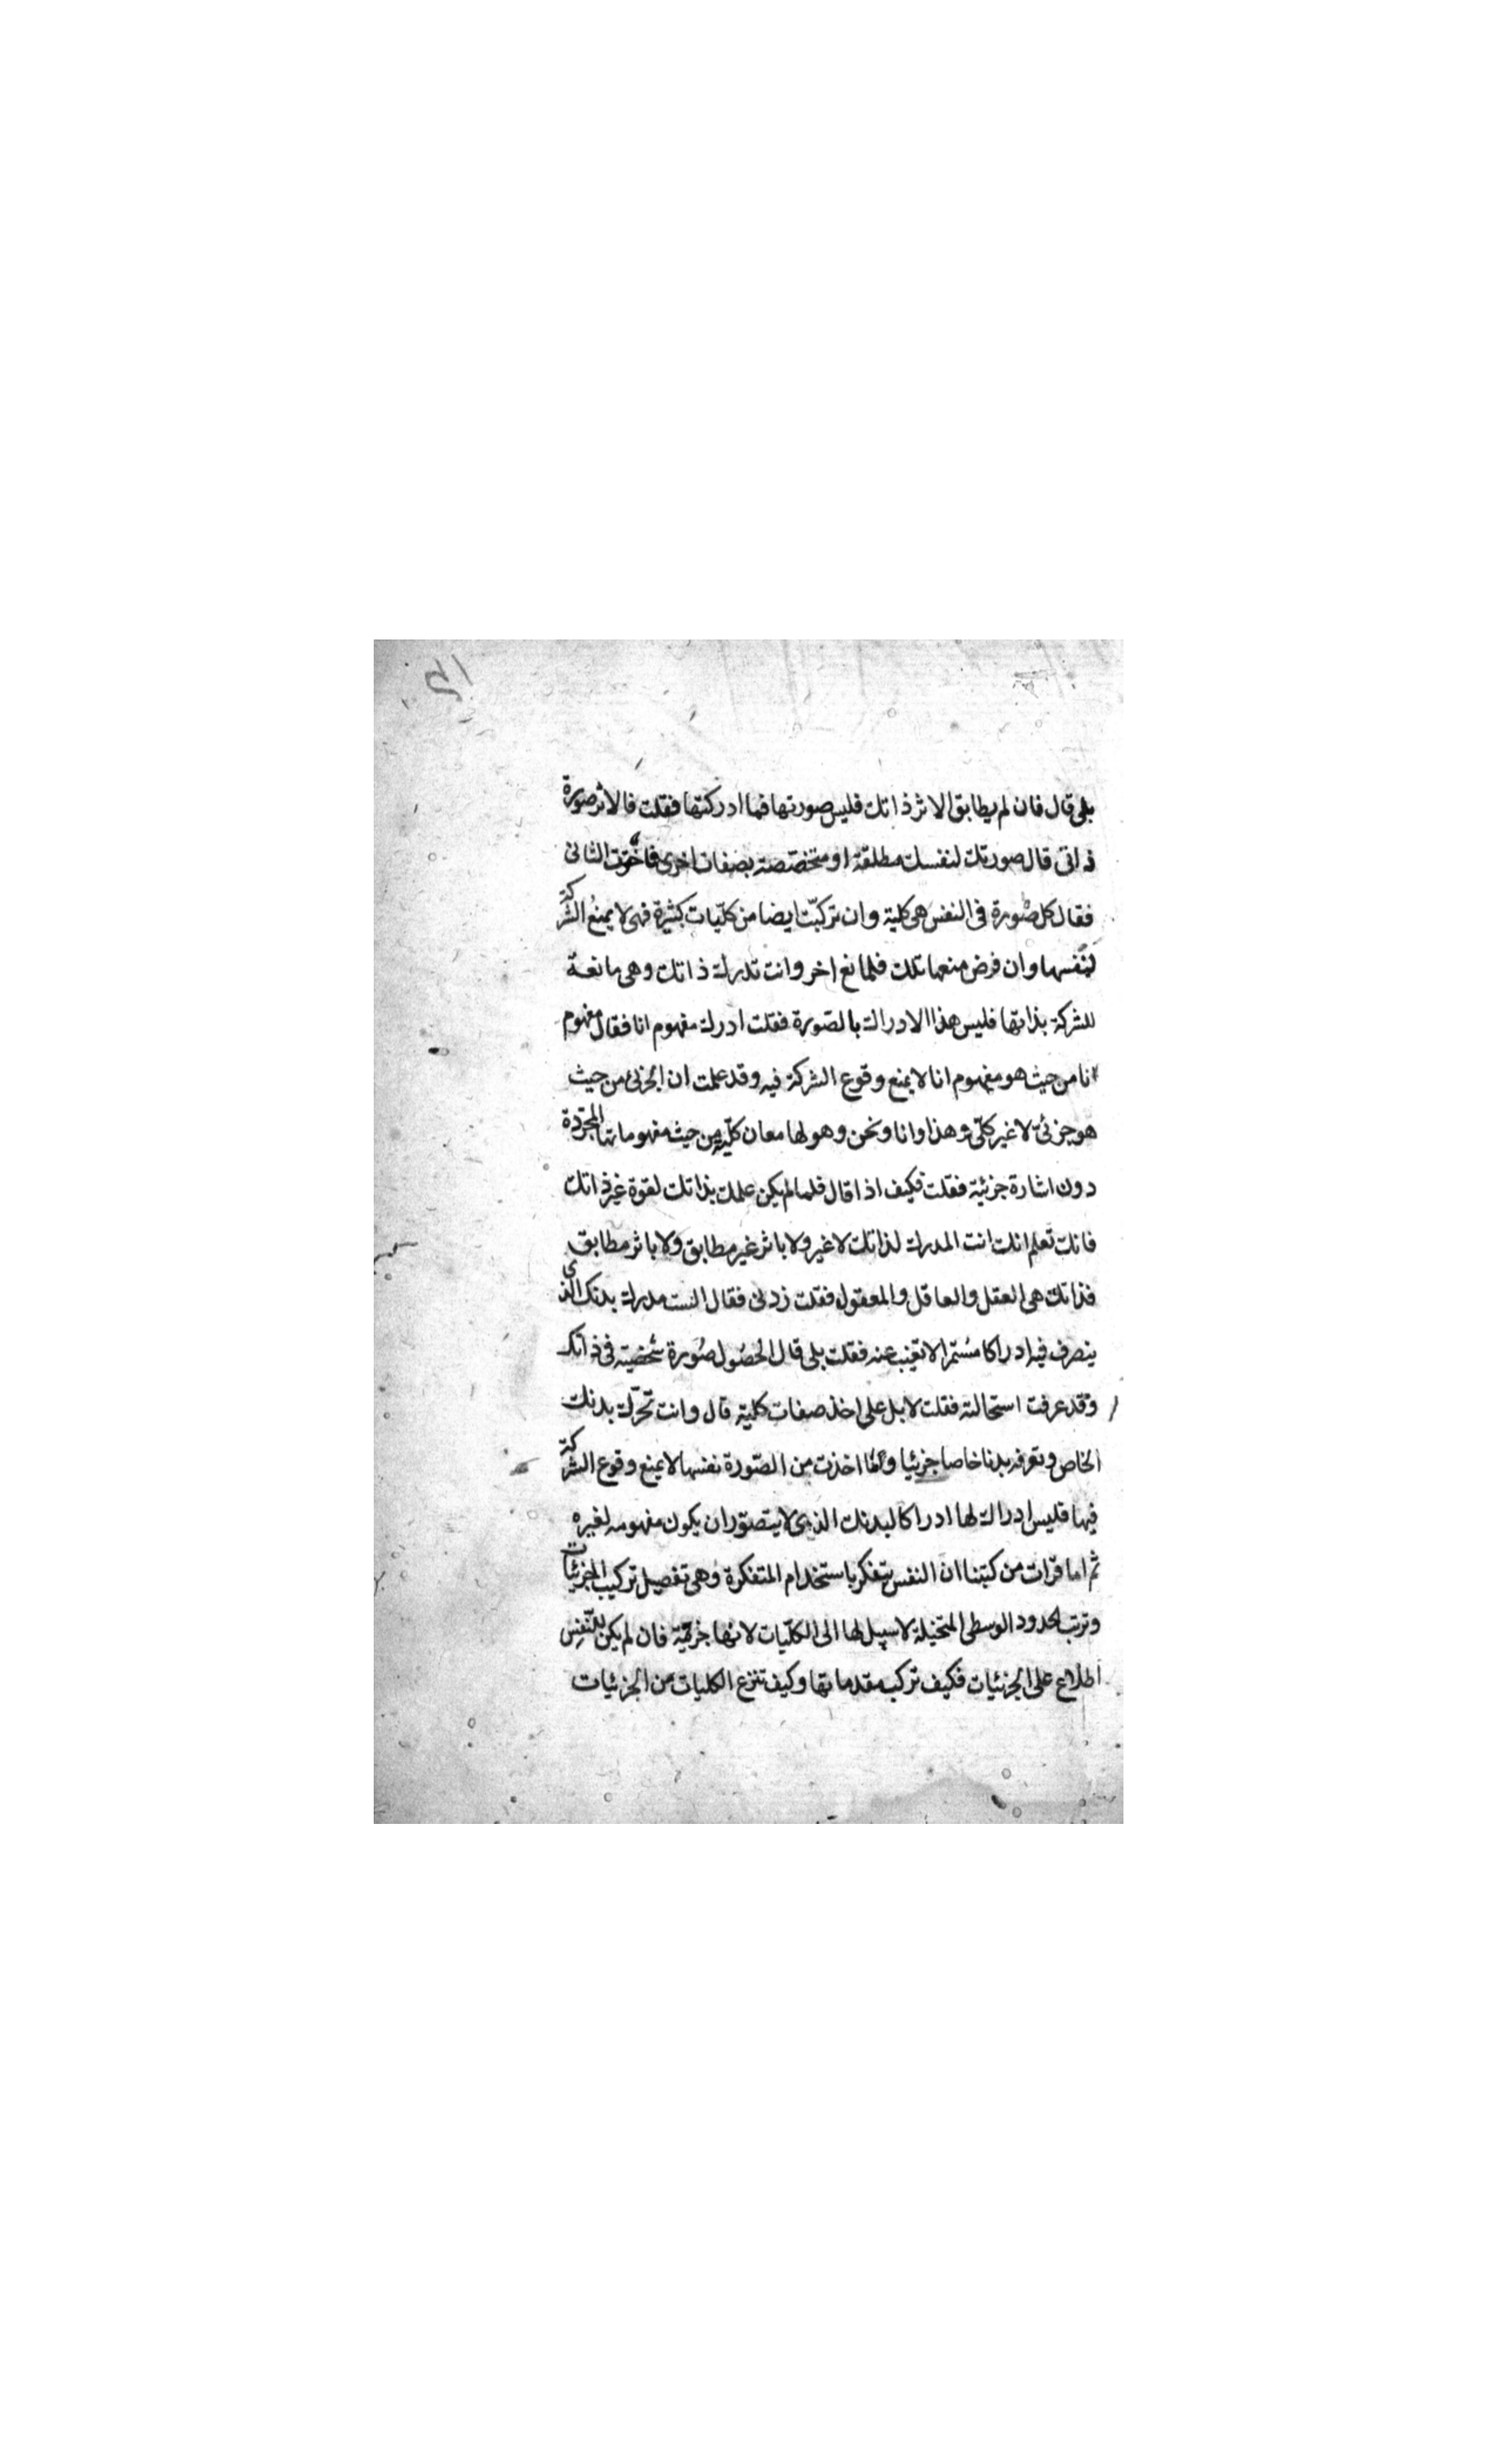 بلى قال فان لم يطابق الاثر ذاتك فليس صورتها فما ادركتها فقلت فالاثر صورة
ذاتى قال صورتك لنفسك مطلقة او متخصصة بصفات اخرى فاخترت الثانى
فقال كل صورة فى النفس هى كلية وان تركبت ايضا من كليات كثيرة فهى لا يمنع الشركة
لنفسها وان فرض منعها تلك فلمانع اخر وانت تدرك ذاتك وهى مانعة
للشركة بذاتها فليس هذا الادراك بالصورة فقلت ادرك مفهوم انا فقال مفهوم
انا من حيث هو مفهوم انا لا يمنع وقوع الشركة فيه وقد علمت ان الجزئى من حيث
هو جزئى لا غير كلى وهذا وانا ونحن وهو لها معان كلية من حيث مفهوماتها المجردة
دون اشارة جزئية فقلت فكيف اذا قال فلما لم يكن علمك بذاتك لقوة غير ذاتك
فانك تعلم انك انت المدرك لذاتك لا غير ولا باثر غير مطابق ولا باثر مطابق
فذاتك هى العقل والعاقل والمعقول فقلت زدنى فقال الست مدرك بدنك الذى
يتصرف فيه ادراكا مستمرا لا تغيب عنه فقلت بلى قال الحصول صورة شخصية فى ذاتك
وقد عرفت استحالته فقلت لا بل على اخذ صفات كلية قال وانت تحرك بدنك
الخاص وتعرفه بدنا خاصا جزئيا وما اخذت من الصورة نفسها لا يمنع وقوع الشركة
فيها فليس ادراك لها ادراكا لبدنك الذى لا يتصور ان يكون مفهومه لغيره
ثم اما قرات من كتبنا ان النفس يتفكر باستخدام المتفكرة وهى تفصيل تركيب الجزئيات
وترتب الحدود الوسطى المتخيلة لا سبيل لها الى الكليات لانها جزئية فان لم يكن للنفس
اطلاع على الجزئيات فكيف تركب مقدماتها وكيف تنزع الكليات من الجزئيات